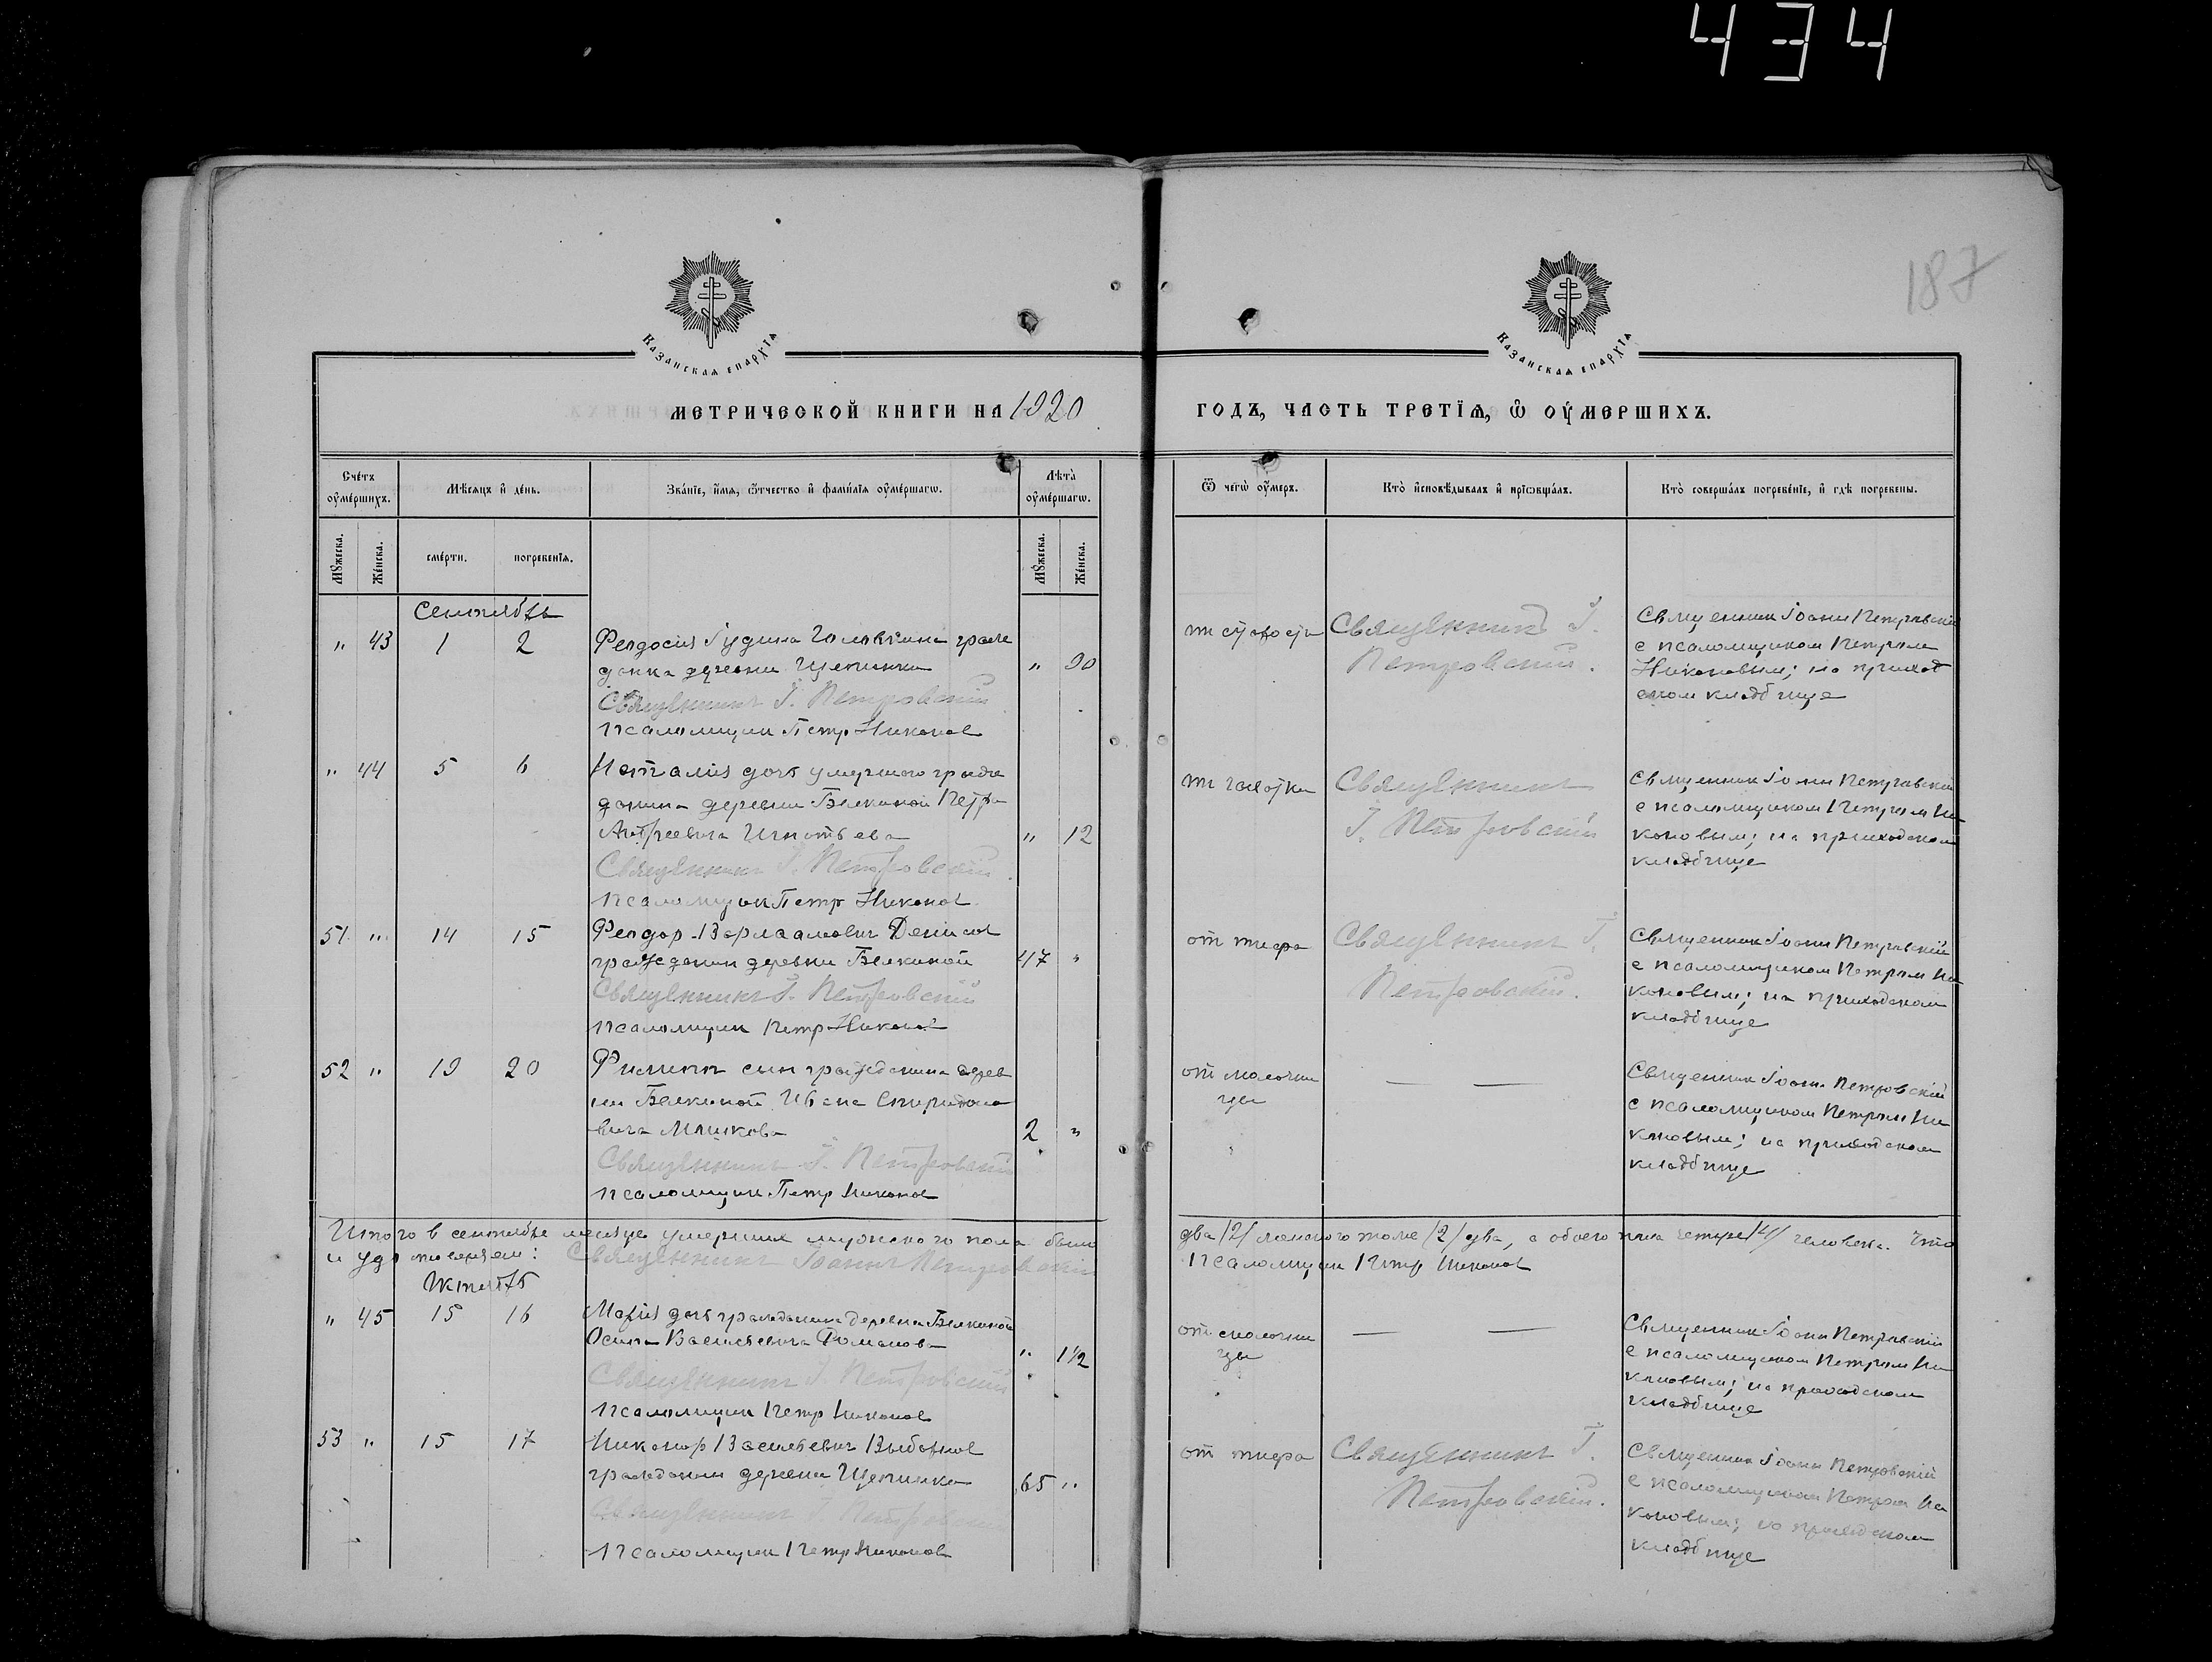 434
187
Казанская епархїѧ
Казанская епархїѧ
МЕТРИЧЕСКОЙ КНИГИ НА 1920
ГОДЪ, ЧАСТЬ ТРЕТЇѦ, Ѡ ОУМЕРШИХЪ.
Счетъ оумершихъ.
Мѣсяцъ и день.
Званїе, имя, отчество и фамилїя оумершагѡ.
Лѣта оумершагѡ.
Ѿ чегѡ оумеръ.
Кто исповѣдывалъ и прїѡбщалъ.
Кто совершалъ погребенїе, и гдѣ погребены.
Мужеска.
Женска.
смерти.
погребенїя.
Мужеска.
Женска.
Сентябрь
" 43 1 2 Феодосия Гудина Головкина граж
данка деревни Щепинки " 90
Священникъ І. Петровскій
псаломщик Петр Никонов
от старости
Священникъ І.
Петровскій.
Священник Іоанн Петровскій
с псаломщиком Петром
Никоновым; на приход
ском кладбище
" 44 5 6 Наталия дочь умершого гражда
данина деревни Белкиной Петра
Андреевича Игнатьева " 12
Священникъ І. Петровскій.
псаломщик Петр Никонов
от чахотки
Священникъ
І. Петровскій
Священник Іоанн Петровскій
с псаломщиком Петром Ни
коновым; на приходском
кладбище
51 " 14 15 Феодор Варлаамович Денисов
гражданин деревни Белкиной 47 "
Священникъ І. Петровскій
псаломщик Петр Никонов
от тифа
Священникъ І.
Петровскій.
Священник Іоанн Петровскій
с псаломщиком Петром Ни
коновым; на приходском
кладбище
52 " 19 20 Филипп сын гражданина дерев
ни Белкиной Ивана Спиридоно
вича Мишкова 2 "
Священникъ І. Петровскій
псаломщик Петр Никонов
от молочни
цы
— —
Священник Іоанн Петровскій
с псаломщиком Петром Ни
коновым; на приходском
кладбище
Итого в сентябре месяце умерших мужского пола было два /2/ женского тоже /2/ два, а обоего пола четыре /4/ человека. Что
и удостоверяем: Священникъ Іоаннъ Петровскій
псаломщик Петр Никонов
Октябрь
" 45 15 16 Мария дочь гражданина деревни Белкиной
Осипа Васильевича Романова " 1½
Священникъ І. Петровскій
псаломщик Петр Никонов
от молочни
цы
— —
Священник Іоанн Петровскій
с псаломщиком Петром Ни
коновым; на приходском
кладбище
53 " 15 17 Никанор Васильевич Выборнов
гражданин деревни Щепинки 65 "
Священникъ І. Петровскій
псаломщик Петр Никонов
от тифа
Священникъ І.
Петровскій.
Священник Іоанн Петровскій
с псаломщиком Петром Ни
коновым; на приходском
кладбище